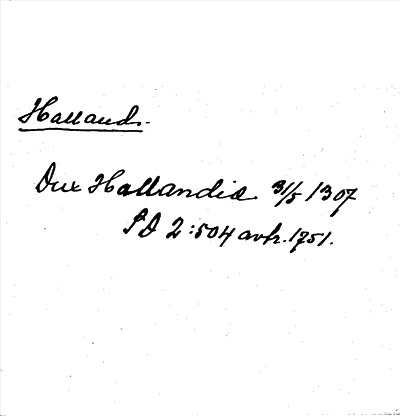 Hallands.
Dux Hallandie 31/5 1307
SD 2:504 avhr. 1751.